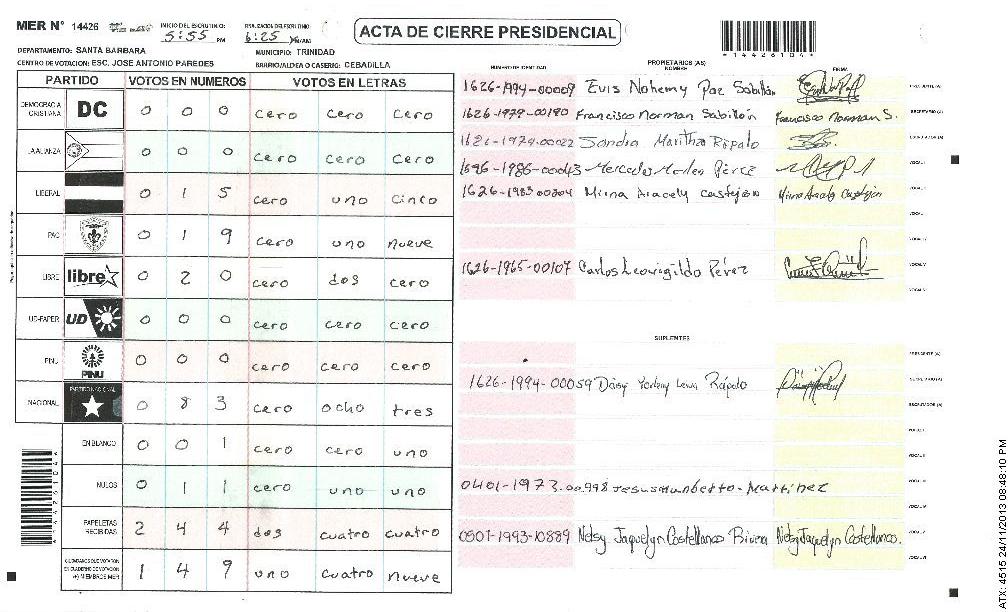 MER N° 14426 INICIO DEL ESCRUTINIO: 5:55 PM FINALIZACION DEL ESCRUTINIO: 6:25 PM/AM ACTA DE CIERRE PRESIDENCIAL *14426104*
DEPARTAMENTO: SANTA BARBARA MUNICIPIO: TRINIDAD
CENTRO DE VOTACION: ESC. JOSE ANTONIO PAREDES BARRIO/ALDEA O CASERIO: CEBADILLA
PARTIDO VOTOS EN NUMEROS VOTOS EN LETRAS
DEMOCRACIA CRISTIANA DC 0 0 0 cero cero cero
LA ALIANZA 0 0 0 cero cero cero
LIBERAL 0 1 5 cero uno cinco
PAC 0 1 9 cero uno nueve
LIBRE libre 0 2 0 cero dos cero
UD-FAPER UD 0 0 0 cero cero cero
PINU PINU 0 0 0 cero cero cero
NACIONAL PARTIDO NACIONAL 0 8 3 cero ocho tres
EN BLANCO 0 0 1 cero cero uno
NULOS 0 1 1 cero uno uno
PAPELETAS RECIBIDAS 2 4 4 dos cuatro cuatro
CIUDADANOS QUE VOTARON EN CUADERNO DE VOTACION (+) MIEMBROS MER 1 4 9 uno cuatro nueve
PROPIETARIOS (AS)
NUMERO DE IDENTIDAD NOMBRE FIRMA
1626-1994-00009 Evis Nohemy Paz Sabillón PRESIDENTE (A)
1626-1979-00190 Francisco Norman Sabillón Francisco Norman S. SECRETARIO (A)
1626-1979-00022 Sondra Maritha Rápalo ESCRUTADOR (A)
1696-1986-00043 Mercedes Pérez VOCAL I
1626-1983-00204 Mirna Aracely Castejón Mirna Aracely Castejón
VOCAL II
VOCAL III
VOCAL IV
1626-1965-00107 Carlos Leowigildo Pérez VOCAL V
VOCAL VI
SUPLENTES
PRESIDENTE (A)
1626-1994-00059 Daisy Rápalo SECRETARIO (A)
ESCRUTADOR (A)
VOCAL I
VOCAL II
0401-1973-00998 Jesus Humberto Martínez VOCAL III
VOCAL IV
0501-1993-10889 Nelsy Jaquelyn Castellanos Rivera Nelsy Jaquelyn Castellanos. VOCAL V
VOCAL VI
*14426104*
ATX: 4515 24/11/2013 08:48:10 PM